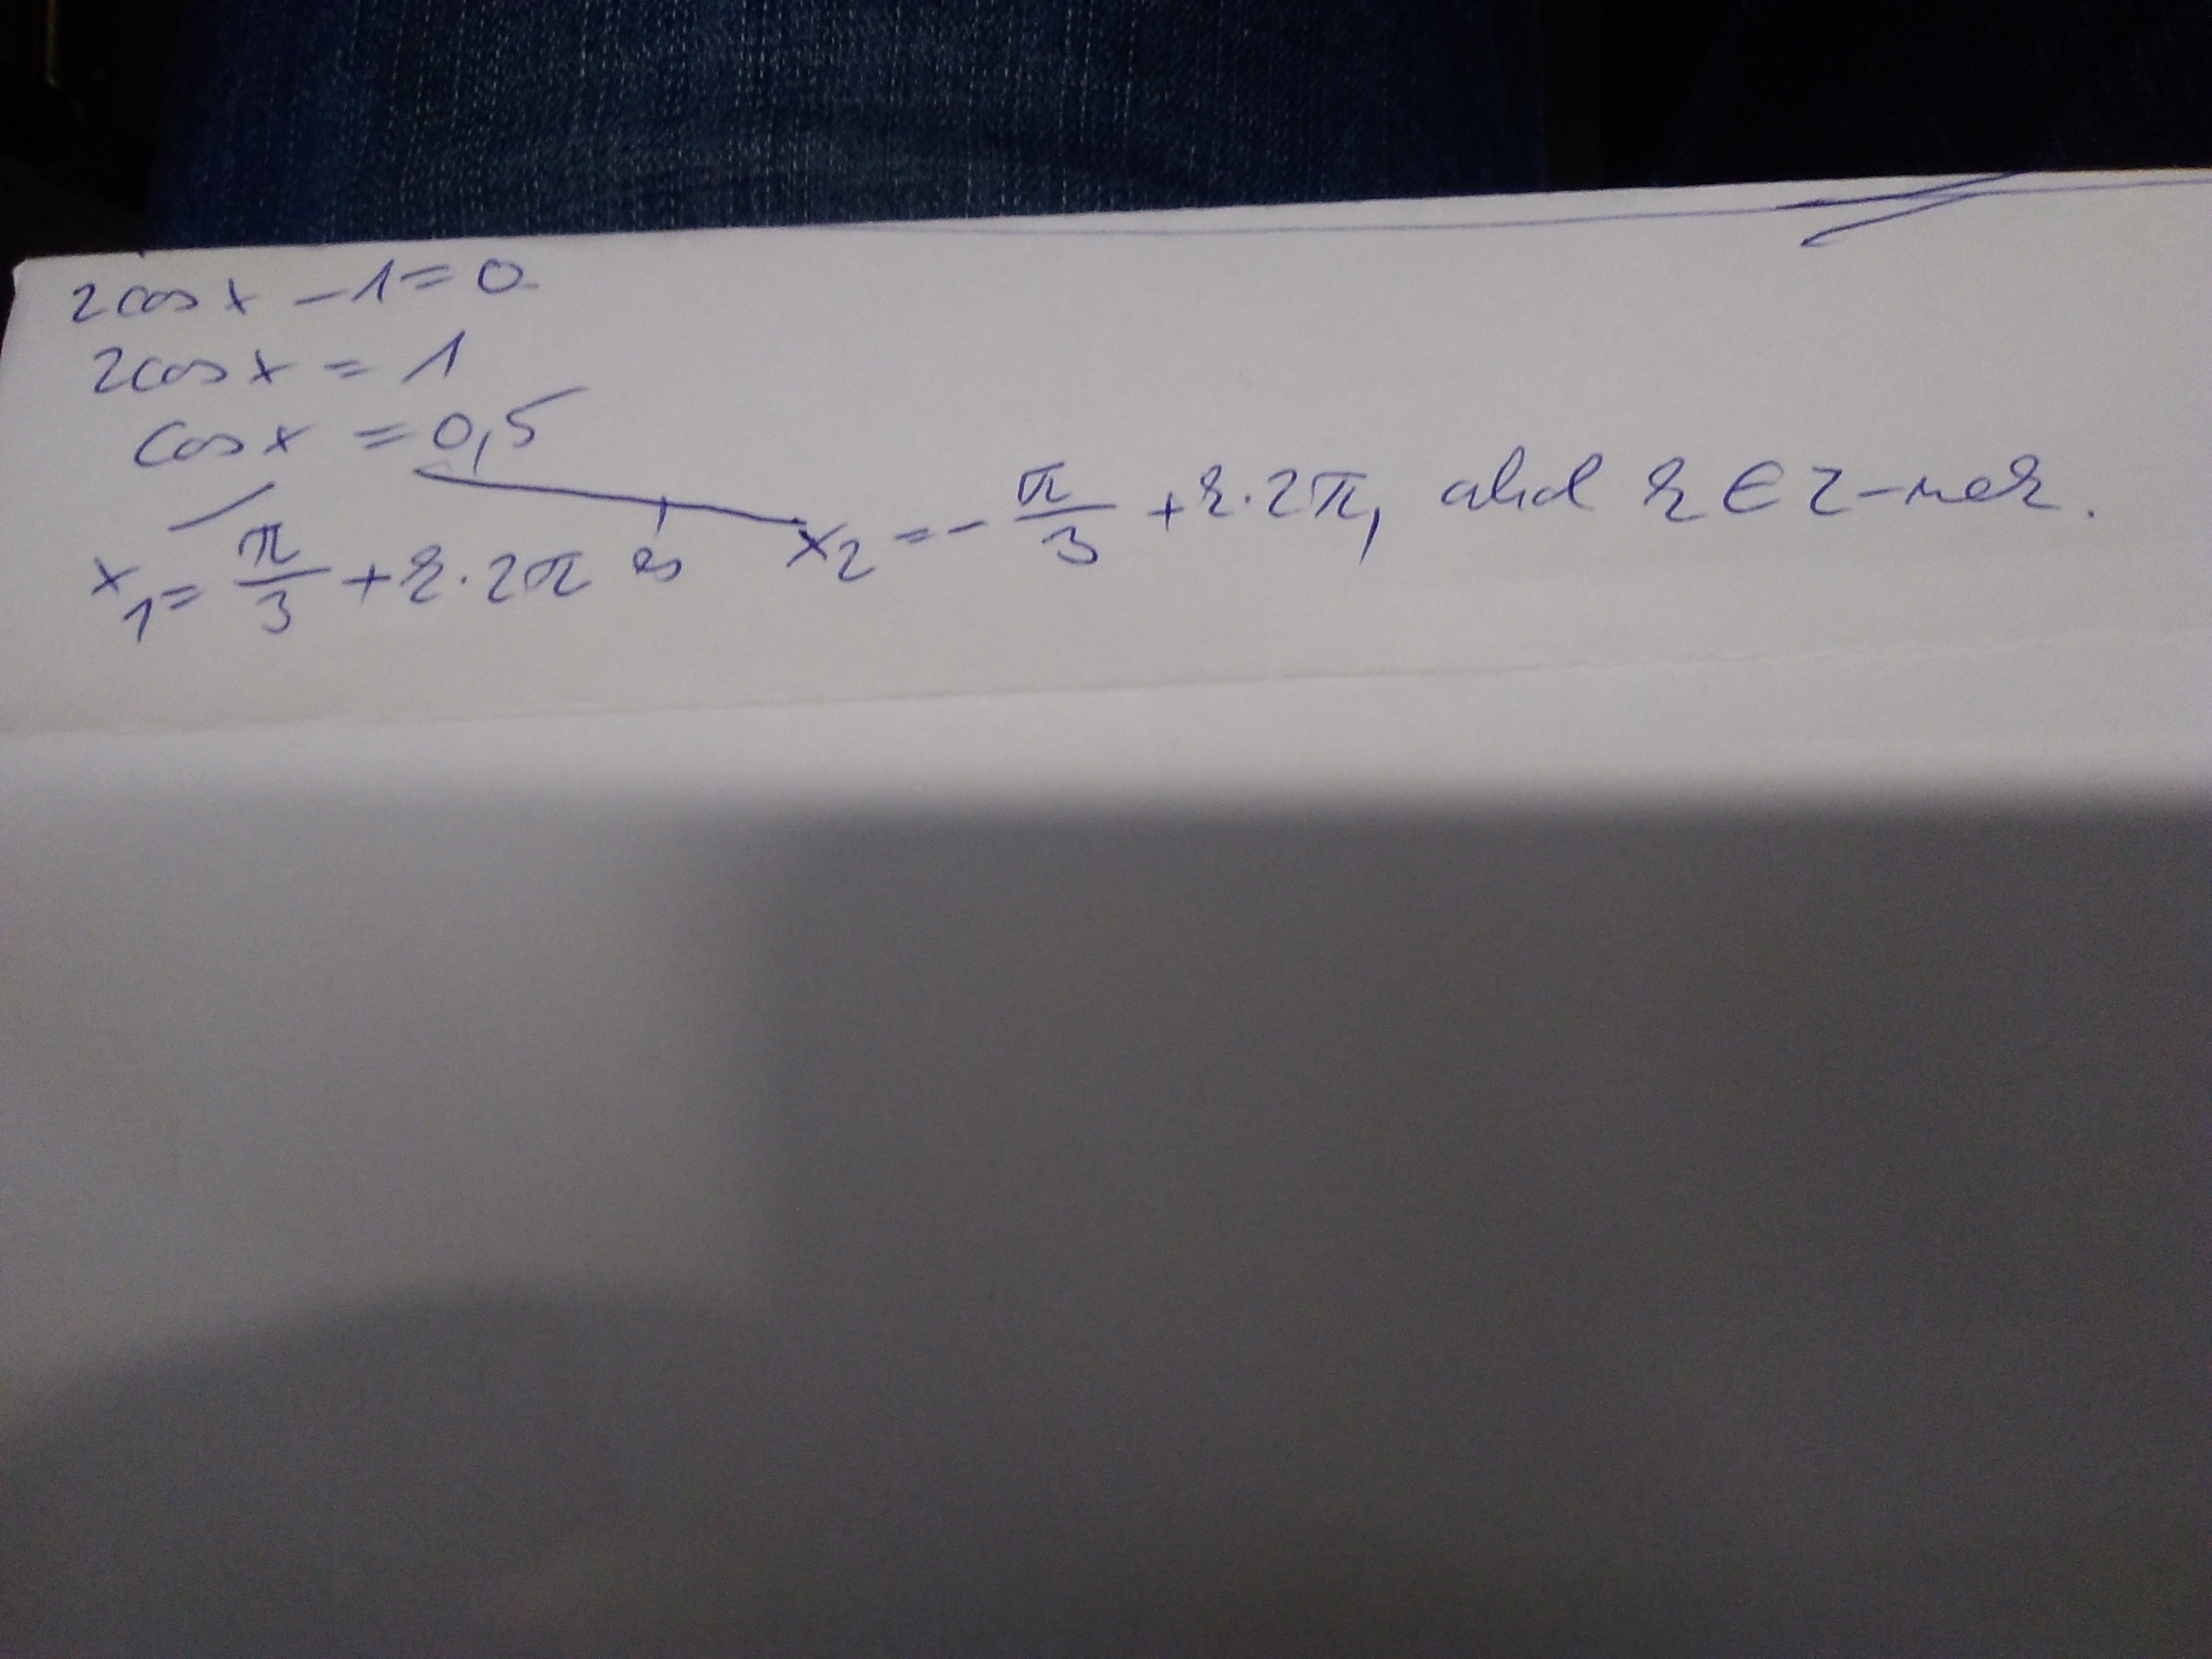 2cos x - 1 = 0
2cos x = 1
cos x = 0,5
x₁ = π/3 + k·2π és x₂ = - π/3 + k·2π, ahol k ∈ Z-nek.